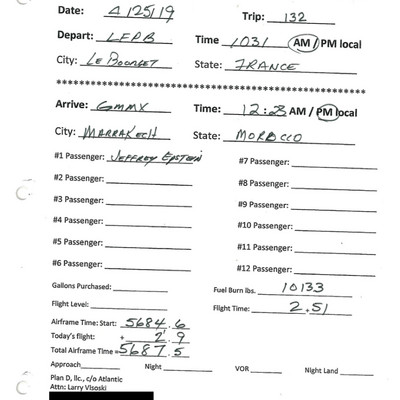 Date: 4/25/19 Trip: 132
Depart: LFPB Time 1031 AM / PM local
City: Le Bourget State: FRANCE
Arrive: GMMX Time: 12:28 AM / PM local
City: MARRAKECH State: MOROCCO
#1 Passenger: JEFFREY EPSTEIN #7 Passenger:
#2 Passenger: #8 Passenger:
#3 Passenger: #9 Passenger:
#4 Passenger: #10 Passenger:
#5 Passenger: #11 Passenger:
#6 Passenger: #12 Passenger:
Gallons Purchased: Fuel Burn lbs. 10133
Flight Level: Flight Time: 2.51
Airframe Time: Start: 5684.6
Today's flight: + 2.9
Total Airframe Time = 5687.5
Approach Night VOR Night Land
Plan D, llc., c/o Atlantic
Attn: Larry Visoski